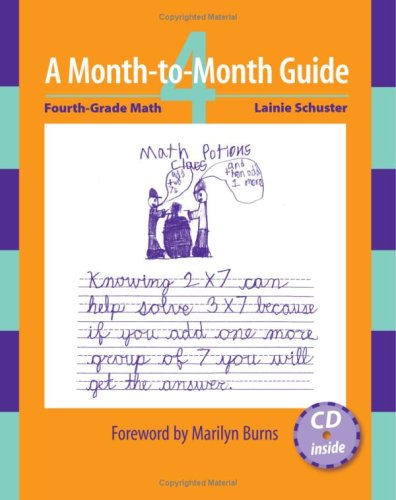 Copyrighted Material
4
A Month-to-Month Guide
Fourth-Grade Math Lainie Schuster
Math Potions
Class
add
two
7s
and
then add
1 more
Knowing 2x7 can
help solve 3x7 because
if you add one more
group of 7 you will
get the answer.
Foreword by Marilyn Burns
CD
inside
Copyrighted Material